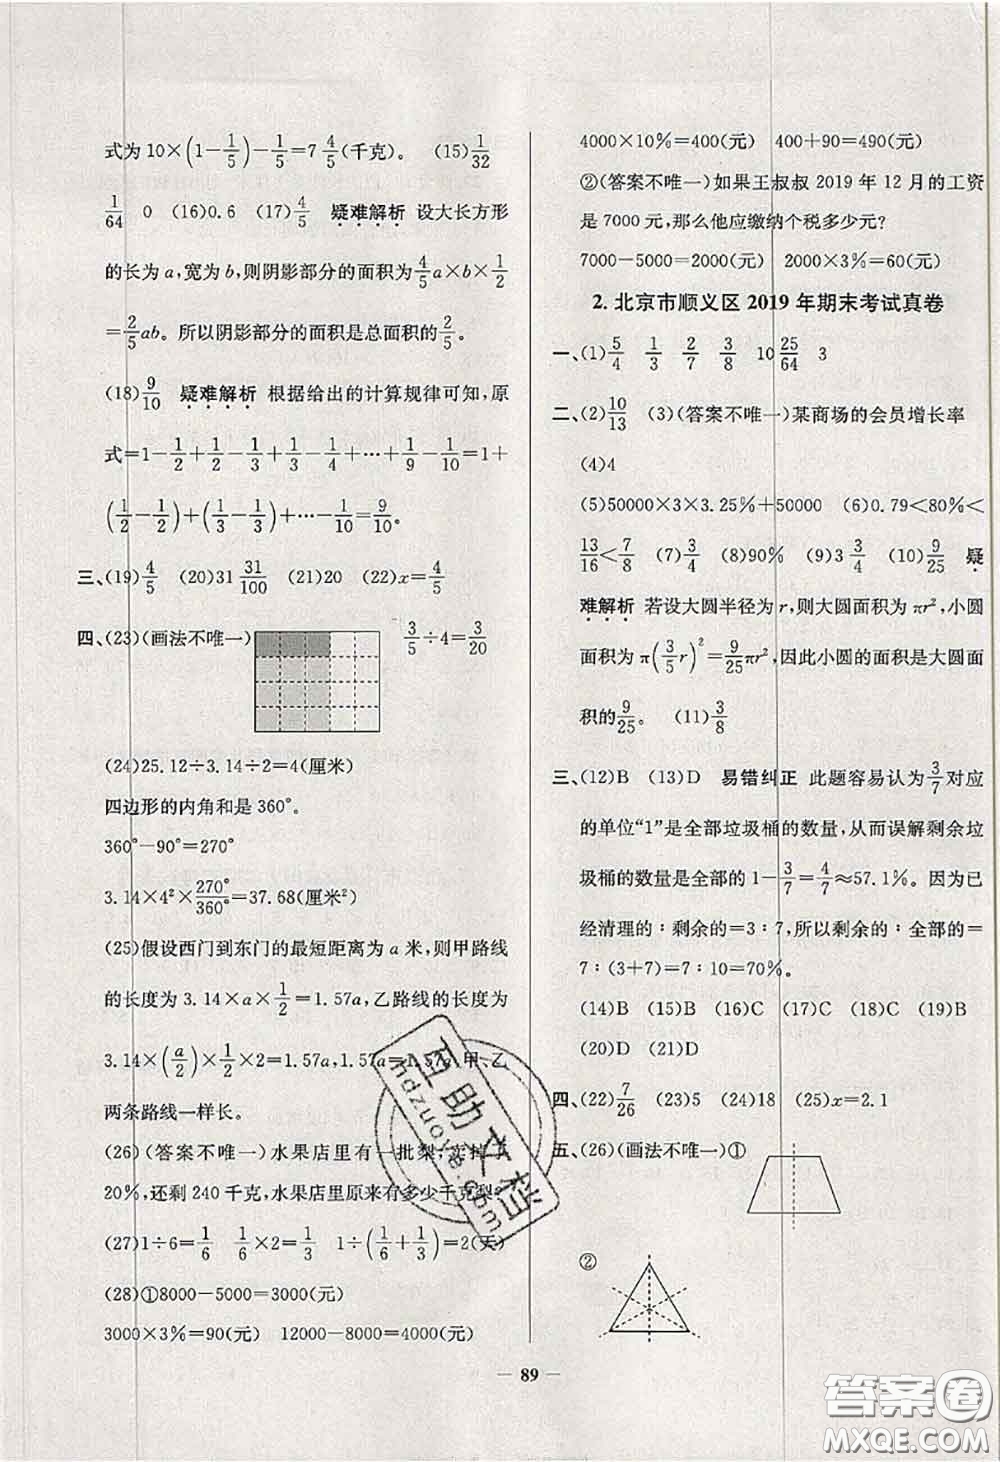 式为10×(1−1/5)−1/5=7 4/5(千克)。 (15)1/32
1/64 0 (16)0.6 (17)4/5 疑难解析 设大长方形
的长为a,宽为b,则阴影部分的面积为4/5a×b×1/2
=2/5ab。所以阴影部分的面积是总面积的2/5。
(18)9/10 疑难解析 根据给出的计算规律可知,原
式=1−1/2+1/2−1/3+1/3−1/4+…+1/9−1/10=1+
(1/2−1/2)+(1/3−1/3)+…−1/10=9/10。
三、(19)4/5 (20)31 31/100 (21)20 (22)x=4/5
四、(23)(画法不唯一) 3/5÷4=3/20
(24)25.12÷3.14÷2=4(厘米)
四边形的内角和是360°。
360°−90°=270°
3.14×4²×270°/360°=37.68(厘米²)
(25)假设西门到东门的最短距离为a米,则甲路线
的长度为3.14×a×1/2=1.57a,乙路线的长度为
3.14×(a/2)×1/2×2=1.57a,1.57a=1.57a,甲、乙
两条路线一样长。
(26)(答案不唯一)水果店里有一批梨,卖掉
20%,还剩240千克,水果店里原来有多少千克梨?
(27)1÷6=1/6 1/6×2=1/3 1÷(1/6+1/3)=2(天)
(28)①8000−5000=3000(元)
3000×3%=90(元) 12000−8000=4000(元)
4000×10%=400(元) 400+90=490(元)
②(答案不唯一)如果王叔叔2019年12月的工资
是7000元,那么他应缴纳个税多少元?
7000−5000=2000(元) 2000×3%=60(元)
2.北京市顺义区2019年期末考试真卷
一、(1)5/4 1/3 2/7 3/8 10 25/64 3
二、(2)10/13 (3)(答案不唯一)某商场的会员增长率
(4)4
(5)50000×3×3.25%+50000 (6)0.79<80%<
13/16<7/8 (7)3/4 (8)90% (9)3 3/4 (10)9/25 疑
难解析 若设大圆半径为r,则大圆面积为πr²,小圆
面积为π(3/5r)²=9/25πr²,因此小圆的面积是大圆面
积的9/25。 (11)3/8
三、(12)B (13)D 易错纠正 此题容易认为3/7对应
的单位“1”是全部垃圾桶的数量,从而误解剩余垃
圾桶的数量是全部的1−3/7=4/7≈57.1%。因为已
经清理的∶剩余的=3∶7,所以剩余的∶全部的=
7∶(3+7)=7∶10=70%。
(14)B (15)B (16)C (17)C (18)C (19)B
(20)D (21)D
四、(22)7/26 (23)5 (24)18 (25)x=2.1
五、(26)(画法不唯一)①
②
— 89 —
互助文档
hdzuoye.com
答案圈
MXQE.COM